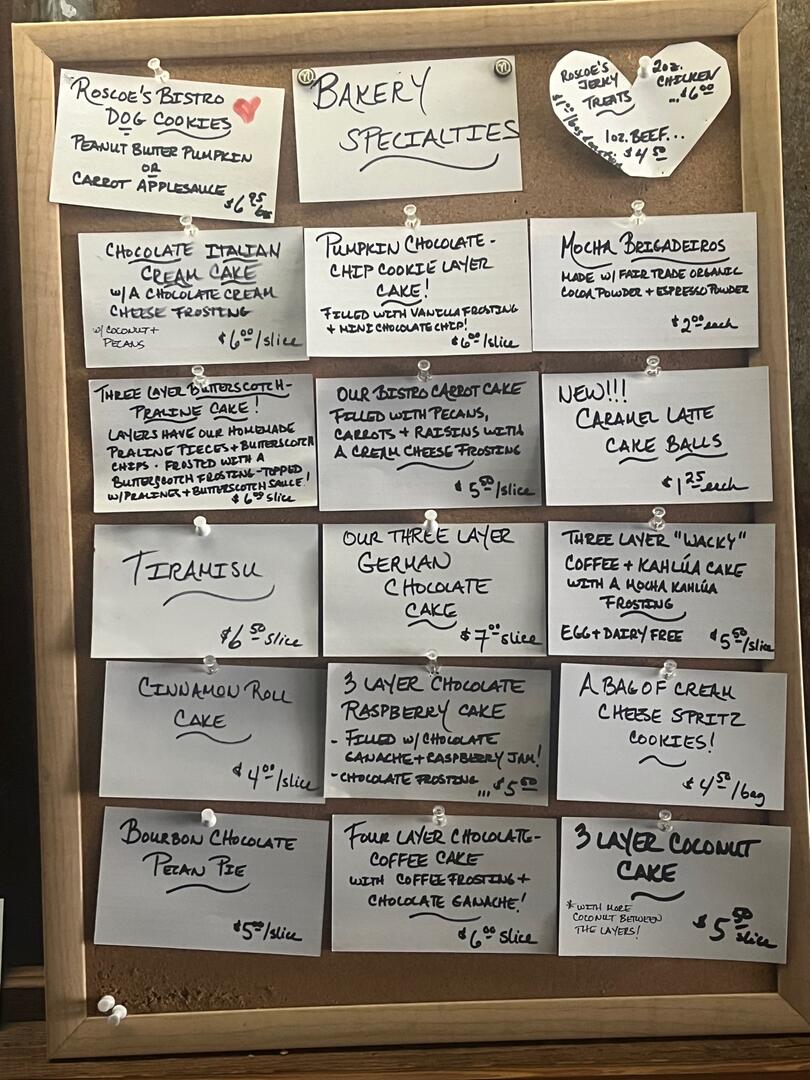 ROSCOE'S BISTRO
DOG COOKIES
PEANUT BUTTER PUMPKIN
OR
CARROT APPLESAUCE
$6.95
BAKERY
SPECIALTIES
ROSCOE'S
JERKY
TREATS
2oz.
CHICKEN
...$6.00
1oz. BEEF...
$4.50
CHOCOLATE ITALIAN
CREAM CAKE
W/A CHOCOLATE CREAM
CHEESE FROSTING
W/ COCONUT +
PECANS
$6.00/slice
PUMPKIN CHOCOLATE-
CHIP COOKIE LAYER
CAKE!
FILLED WITH VANILLA FROSTING
+ MINI CHOCOLATE CHIP!
$6.00/slice
MOCHA BRIGADEIROS
MADE W/ FAIR TRADE ORGANIC
COCOA POWDER + ESPRESSO POWDER
$2.00 each
THREE LAYER BUTTERSCOTCH-
PRALINE CAKE!
LAYERS HAVE OUR HOMEMADE
PRALINE PIECES + BUTTERSCOTCH
CHIPS. FROSTED WITH A
BUTTERSCOTCH FROSTING-TOPPED
W/PRALINES + BUTTERSCOTCH SAUCE!
$6.00 slice
OUR BISTRO CARROT CAKE
FILLED WITH PECANS,
CARROTS + RAISINS WITH
A CREAM CHEESE FROSTING
$5.50/slice
NEW!!!
CARAMEL LATTE
CAKE BALLS
$1.25 each
TIRAMISU
$6.50 slice
OUR THREE LAYER
GERMAN
CHOCOLATE
CAKE
$7.00 slice
THREE LAYER "WACKY"
COFFEE + KAHLÚA CAKE
WITH A MOCHA KAHLÚA
FROSTING
EGG + DAIRY FREE $5.50/slice
CINNAMON ROLL
CAKE
$4.00/slice
3 LAYER CHOCOLATE
RASPBERRY CAKE
- FILLED W/ CHOCOLATE
GANACHE + RASPBERRY JAM!
- CHOCOLATE FROSTING
...$5.50
A BAG OF CREAM
CHEESE SPRITZ
COOKIES!
$4.50/bag
BOURBON CHOCOLATE
PECAN PIE
$5.00/slice
FOUR LAYER CHOCOLATE-
COFFEE CAKE
WITH COFFEE FROSTING +
CHOCOLATE GANACHE!
$6.00 slice
3 LAYER COCONUT
CAKE
* WITH MORE
COCONUT BETWEEN
THE LAYERS!
$5.50
slice